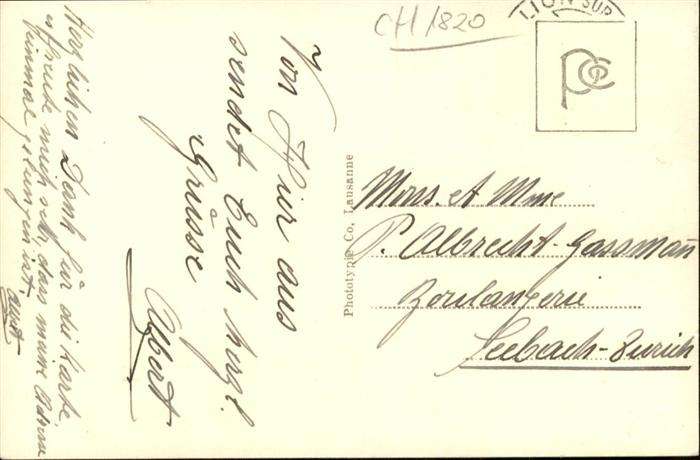 CH 1820
LION SUR
PCo
Von Hier aus
sendet Euch herzl.
Grüsse
Albert
Herzlichen Dank für die Karte,
es freute mich sehr, dass meine Adresse
einmal gelungen ist.
Albert
Phototypie Co, Lausanne
Mons. et Mme
P. Albrecht-Gassmann
Boulangerie
Seebach-Zurich